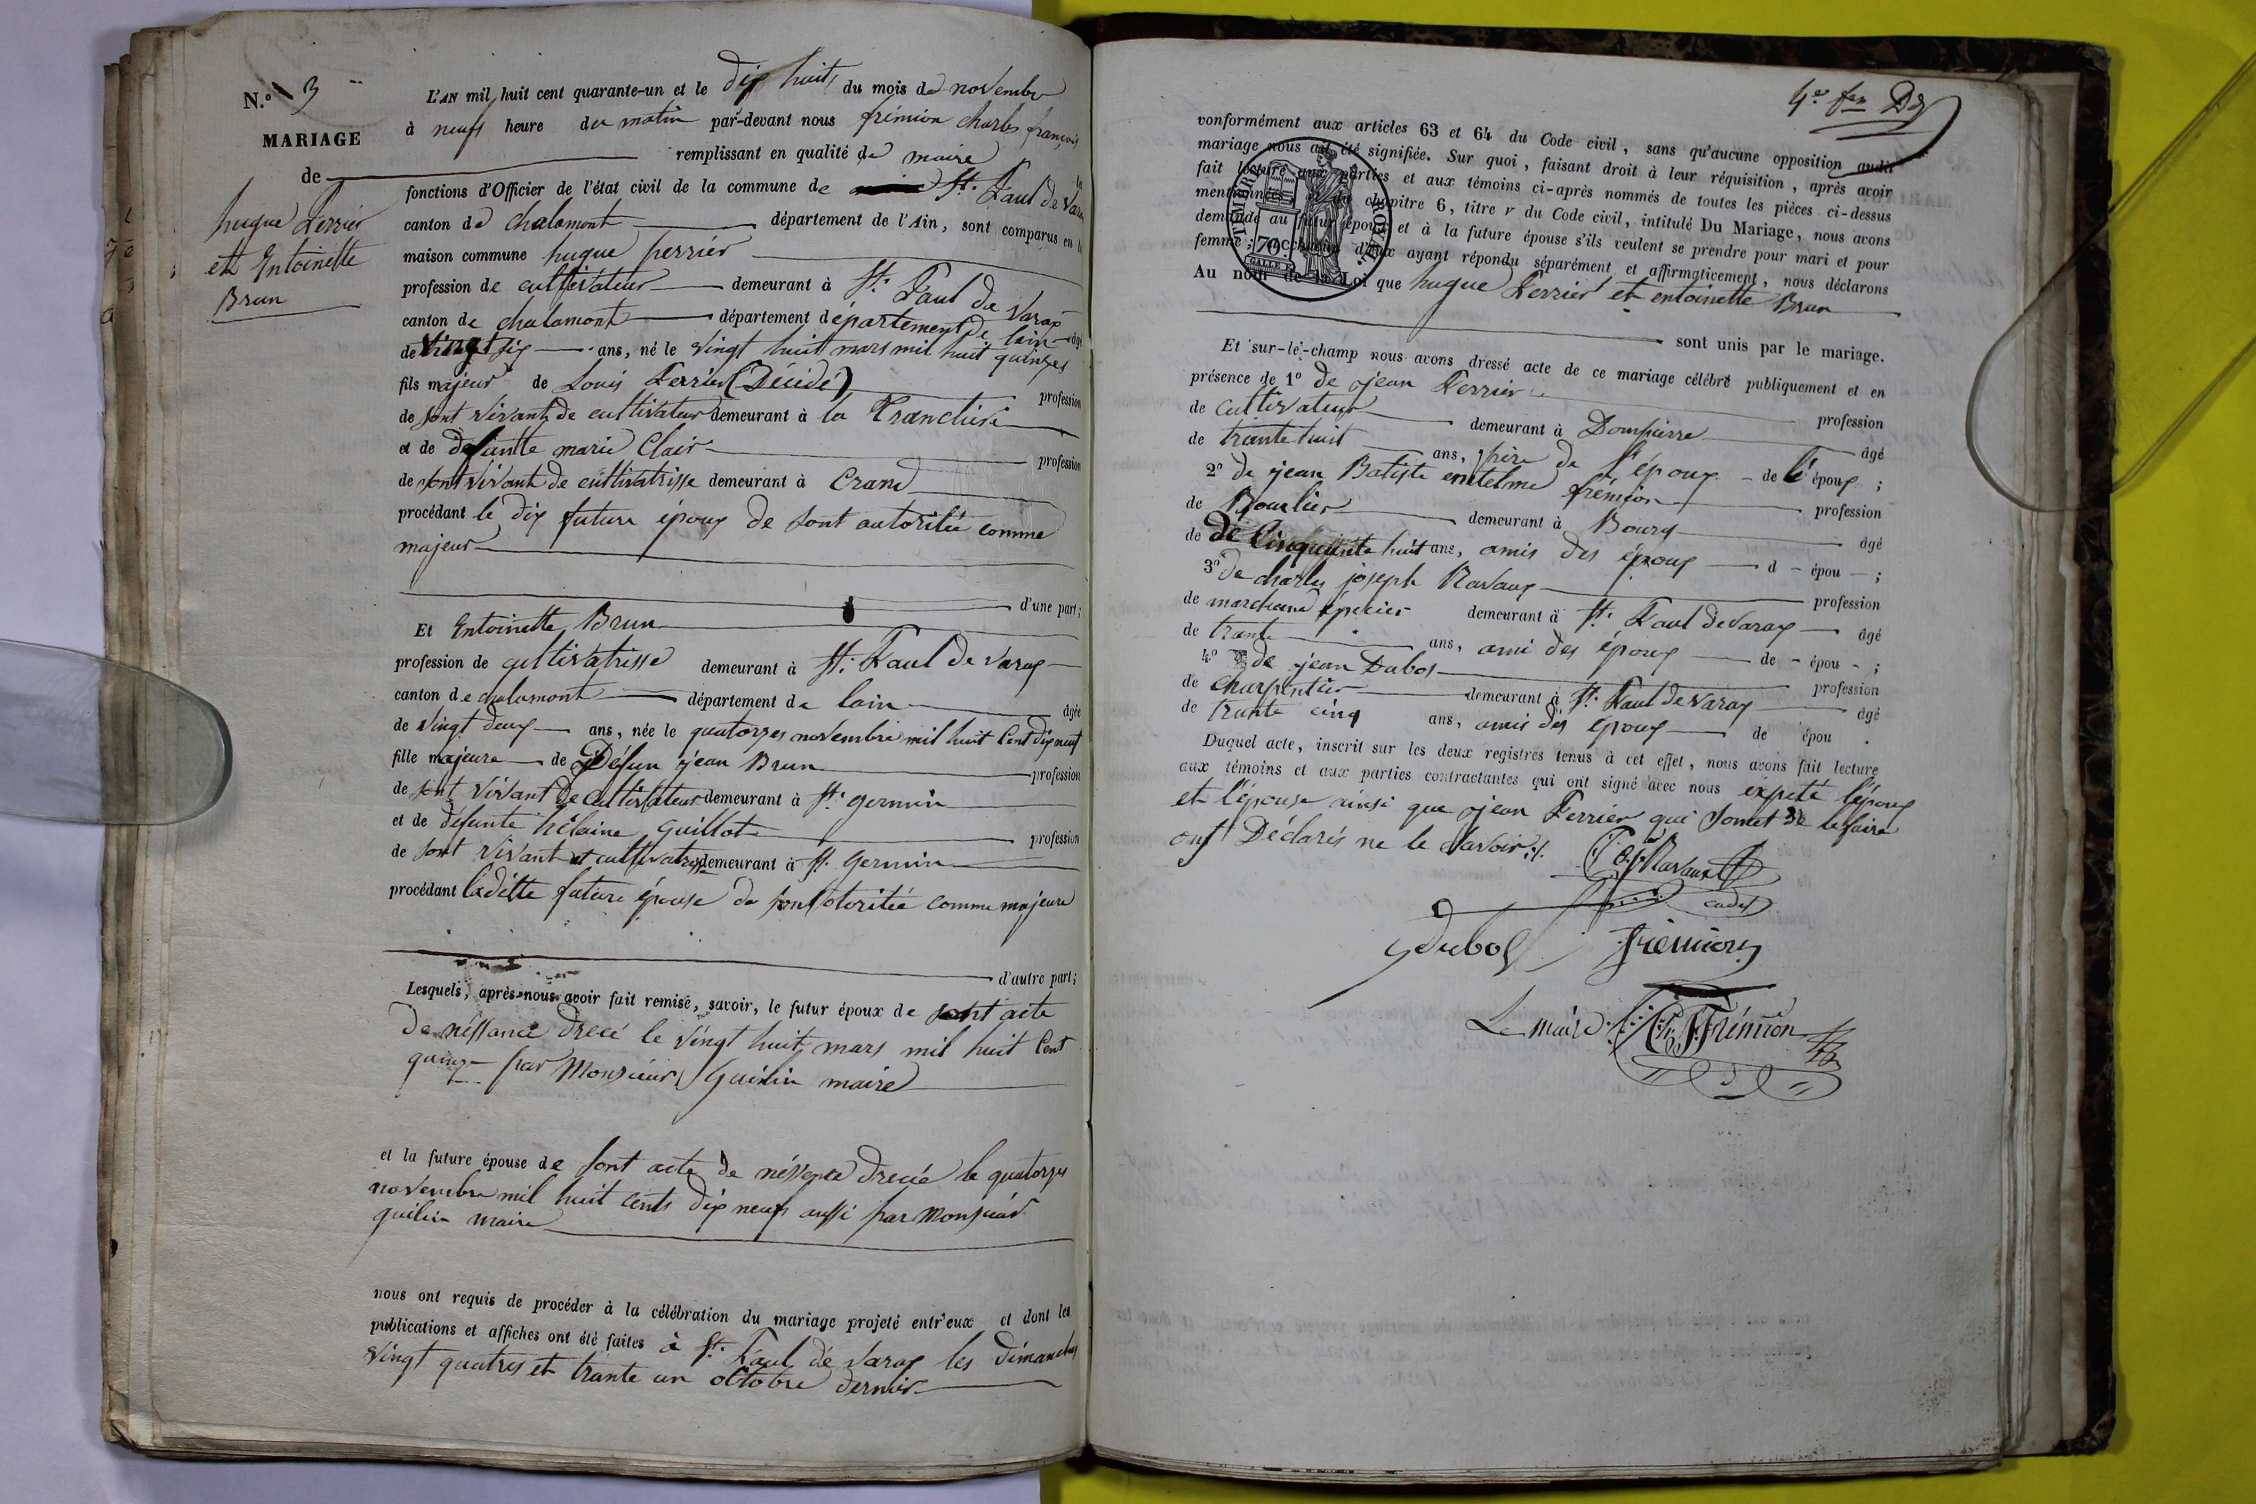 N.º 3
MARIAGE
de
hugue Perrier
et Entoinette
Brun
L'AN mil huit cent quarante-un et le dix huit du mois de novembre
à neufs heure du matin par-devant nous frémion charles françois
remplissant en qualité de maire
fonctions d'Officier de l'état civil de la commune de St. Paul de Varax
canton de chalamont département de l'Ain, sont comparus en la
maison commune hugue perrier
profession de cultivateur demeurant à St. Paul de Varax
canton de chalamont département département de lain âgé
de vingt six ans, né le vingt huit mars mil huit quinzes
fils majeur de Louis Perrier (Décédé) profession
de sont vivant de cultivateur demeurant à la Tranclière
et de défunte marie Clair profession
de sont vivant de cultivatrisse demeurant à Crans
procédant le dix future époux de sont autoritée comme
majeur
d'une part;
Et Entoinette Brun
profession de cultivatrisse demeurant à St. Paul de Varax
canton de chalamont département de lain âgée
de vingt deux ans, née le quatorzes novembre mil huit Cent dix neuf
fille majeure de Défun jean Brun profession
de sont vivant de cultivateur demeurant à St. germin
et de défunte hélaine guillot profession
de sont vivant et cultivatrisse demeurant à St. germin
procédant laditte future épouse de sont otoritée comme majeure
d'autre part;
Lesquels, après nous avoir fait remise, savoir, le futur époux de sont acte
de néssance drecé le vingt huit mars mil huit Cent
quinze par Monsieur Guilin maire
et la future épouse de sont acte de néssance drecée le quatorzes
novembre mil huit cents dix neufs aussi par Monsieur
guilin maire
nous ont requis de procéder à la célébration du mariage projeté entr'eux et dont les
publications et affiches ont été faites à St. Paul de Varax les dimanches
vingt quatres et trante un octobre dernier
conformément aux articles 63 et 64 du Code civil, sans qu'aucune opposition audit
mariage nous ait été signifiée. Sur quoi, faisant droit à leur réquisition, après avoir
fait lecture aux parties et aux témoins ci-après nommés de toutes les pièces ci-dessus
mentionnées du chapitre 6, titre v du Code civil, intitulé Du Mariage, nous avons
demandé au futur époux et à la future épouse s'ils veulent se prendre pour mari et pour
femme; chacun d'eux ayant répondu séparément et affirmativement, nous déclarons
Au nom de la Loi que hugue Perrier et entoinette Brun
sont unis par le mariage.
TIMBRE ROYAL
70.c
Et sur-le-champ nous avons dressé acte de ce mariage célébré publiquement et en
présence de 1º de jean Perrier profession
de cultivateur demeurant à Dompierre âgé
de trante huit ans, frère de l'époux de l'époux;
2º de jean Batiste entelme frémion profession
de Bourlier demeurant à Bourg âgé
de de Cinquante huit ans, amis des époux d épou;
3º de charles joseph Ravaux profession
de marchand épicier demeurant à St. Paul de Varax âgé
de trante ans, ami des époux de épou;
4º de jean Dubos profession
de charpentier demeurant à St. Paul de Varax âgé
de trante cinq ans, amis des époux de épou.
Duquel acte, inscrit sur les deux registres tenus à cet effet, nous avons fait lecture
aux témoins et aux parties contractantes qui ont signé avec nous expété l'époux
et l'épouse ainsi que jean Perrier qui somet de le faire
ont Déclarés ne le savoir
Ravaux
cadet
Dubos frémion
Le maire Ch. F. Frémion